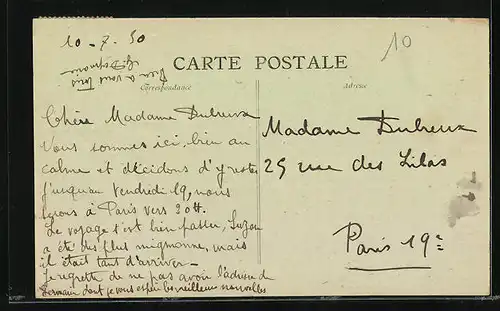 10-7-30
10
Bien à vous tous
CARTE POSTALE
Correspondance
Adresse
Chère Madame Dubreux
Vous sommes ici, bien au
calme et décidons d'y rester
jusquau Vendredi 19, nous
serons à Paris vers 20H.
Le voyage s'est bien passer, Suzon
a été des plus mignonne, mais
il était tant d'arriver -
Je regrette de ne pas avoir l'adresse de
Germain dont je vous espère de meilleures nouvelles
Madame Dubreux
25 rue des Lilas
Paris 19e